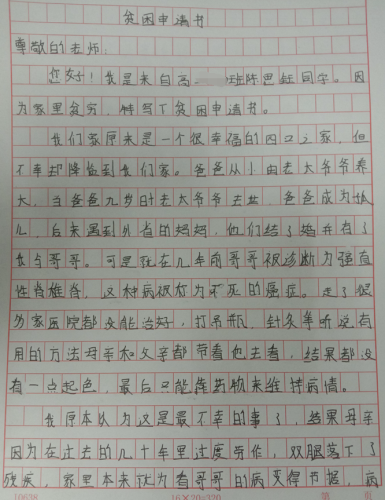 贫困申请书
尊敬的老师:
您好!我是来自高 班陈思钰同学。因
为家里贫穷,特写下贫困申请书。
我们家原来是一个很幸福的四口之家,但
不幸却降临到我们家。爸爸从小由老太爷爷养
大,当爸爸几岁时老太爷爷去世,爸爸成为孤
儿,后来遇到外省的妈妈,他们结了婚并有了
我与哥哥。可是就在几年前哥哥被诊断为强直
性脊椎脊,这种病被称为不死的癌症。走了很
多家医院都没能治好,打吊瓶、针灸等听说有
用的方法母亲和父亲都带着他去看,结果都没
有一点起色,最后只能靠药物来维持病情。
我原本认为这是最不幸的事了,结果母亲
因为在过去的几十年里过度劳作,双腿落下了
残疾,家里本来就为着哥哥的病变得节据,病
16×20=320